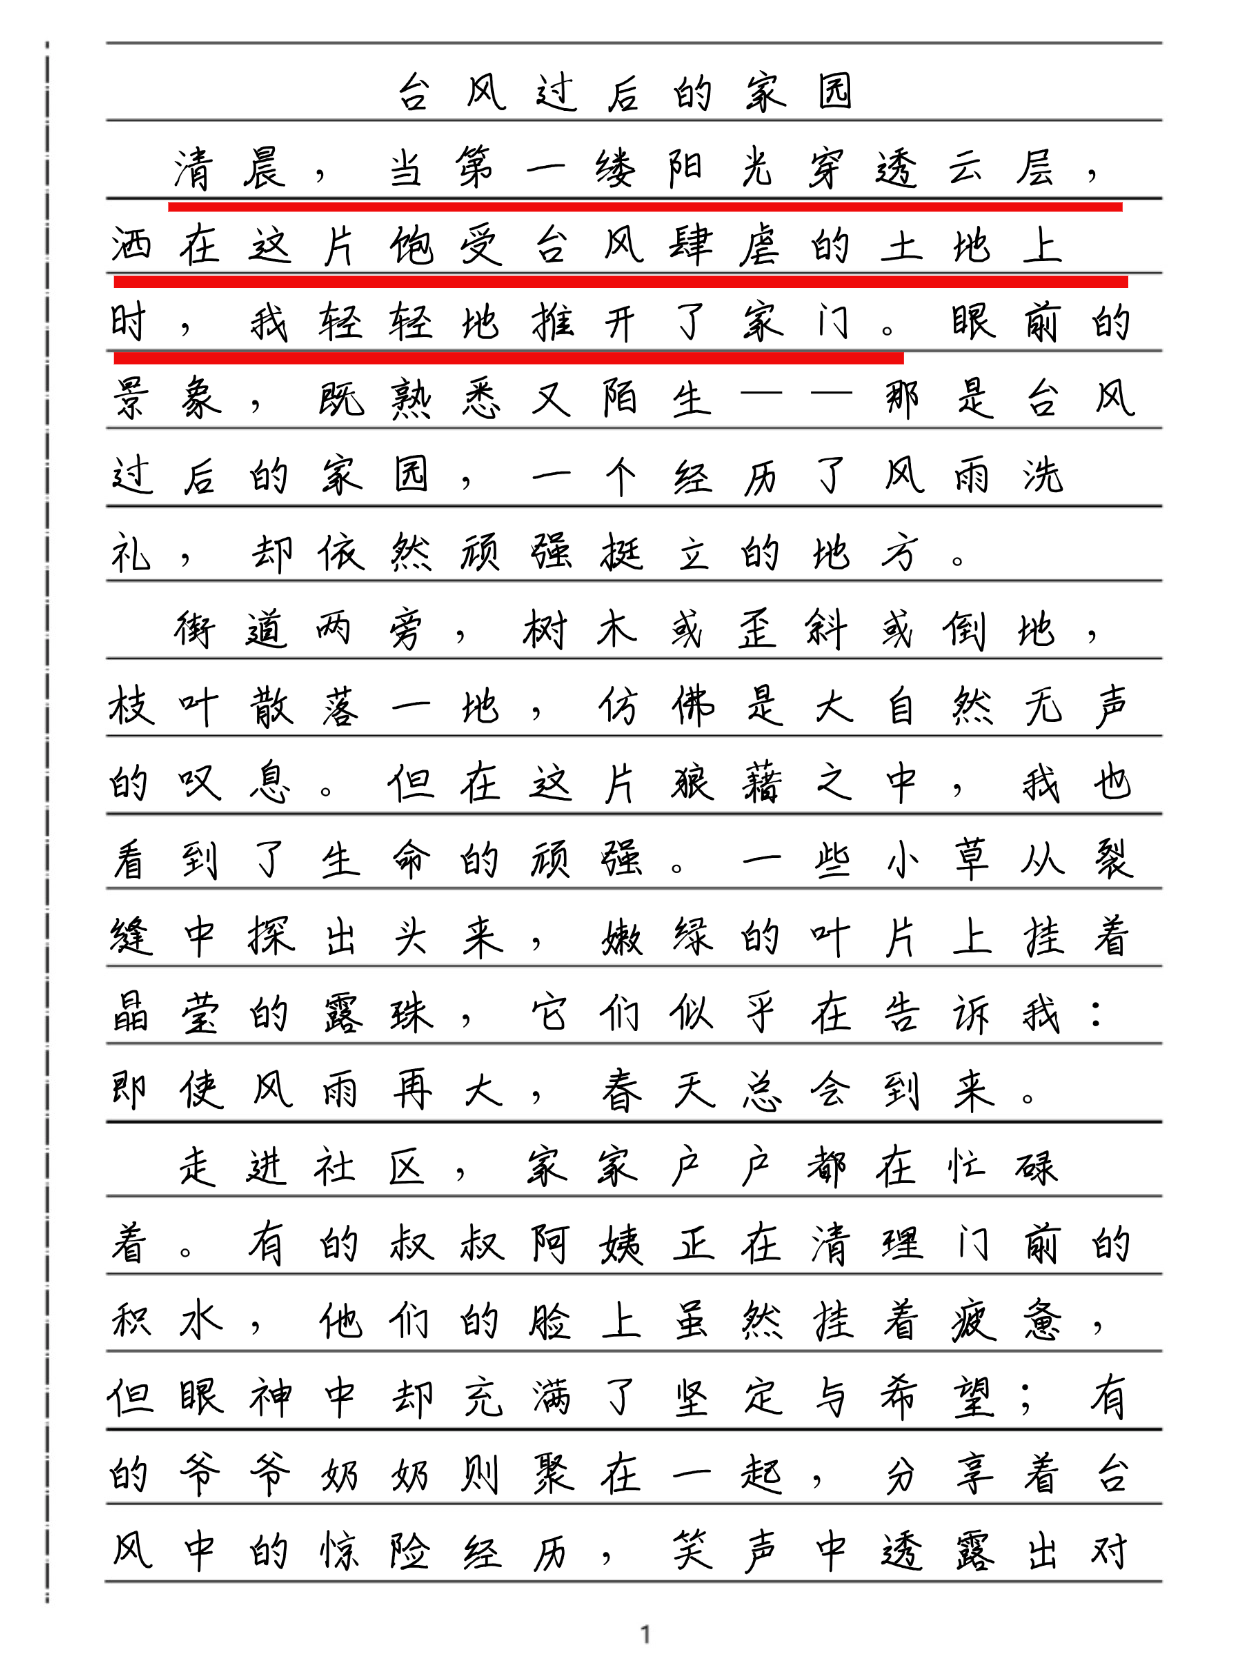 台风过后的家园
清晨，当第一缕阳光穿透云层，
洒在这片饱受台风肆虐的土地上
时，我轻轻地推开了家门。眼前的
景象，既熟悉又陌生——那是台风
过后的家园，一个经历了风雨洗
礼，却依然顽强挺立的地方。
街道两旁，树木或歪斜或倒地，
枝叶散落一地，仿佛是大自然无声
的叹息。但在这片狼藉之中，我也
看到了生命的顽强。一些小草从裂
缝中探出头来，嫩绿的叶片上挂着
晶莹的露珠，它们似乎在告诉我：
即使风雨再大，春天总会到来。
走进社区，家家户户都在忙碌
着。有的叔叔阿姨正在清理门前的
积水，他们的脸上虽然挂着疲惫，
但眼神中却充满了坚定与希望；有
的爷爷奶奶则聚在一起，分享着台
风中的惊险经历，笑声中透露出对
1